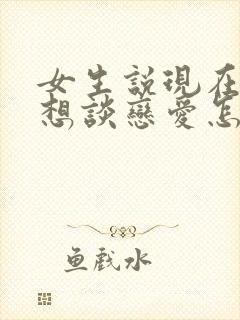 女生説現在
想談戀愛怎
鱼戲水